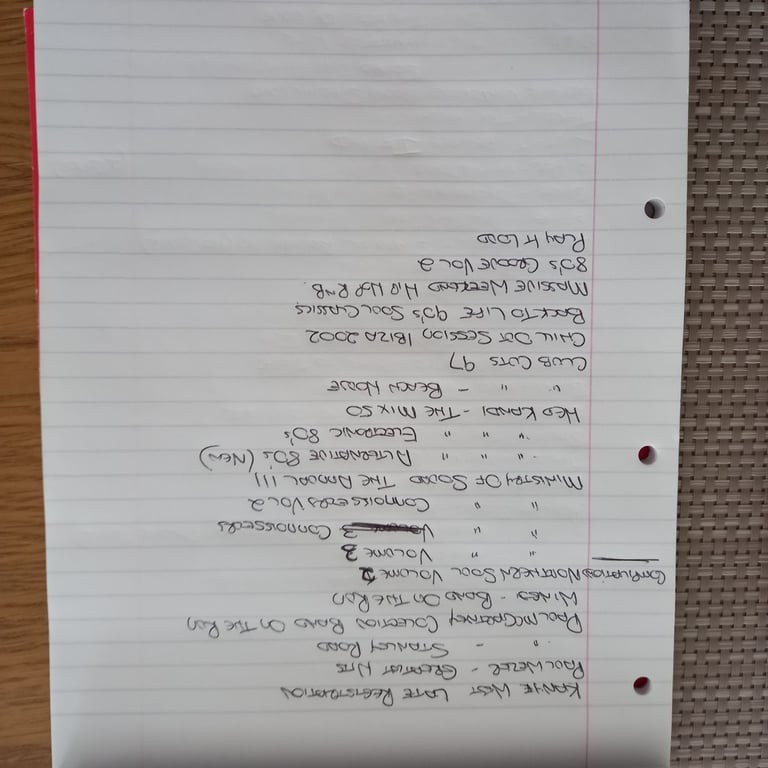 KANYE WEST LATE REGISTRATION
PAUL WELLER - GREATEST HITS
" - STANLEY ROAD
PAUL MCCARTNEY COLLECTION BAND ON THE RUN
WINGS - BAND ON THE RUN
COMPILATION NORTHERN SOUL VOLUME 2
" " VOLUME 3
" " CONNOISSEURS
" " CONNOISSEURS VOL 2
MINISTRY OF SOUND THE ANNUAL III
" " " ALTERNATIVE 80's (NEW)
" " " ELECTRONIC 80's
HED KANDI - THE MIX 50
" " - BEACH HOUSE
CLUB CUTS 97
CHILL OUT SESSION IBIZA 2002
BACK TO LIFE 90's SOUL CLASSICS
MASSIVE WEEKEND HIP HOP RnB.
80's GROOVE VOL 2
PLAY IT LOUD